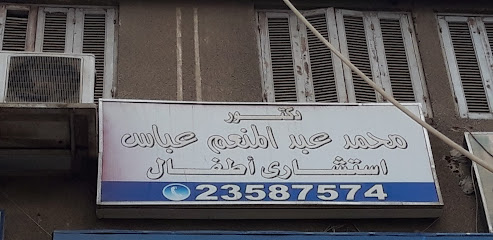 دكتور
محمد عبد المنعم عباس
استشارى أطفال
23587574